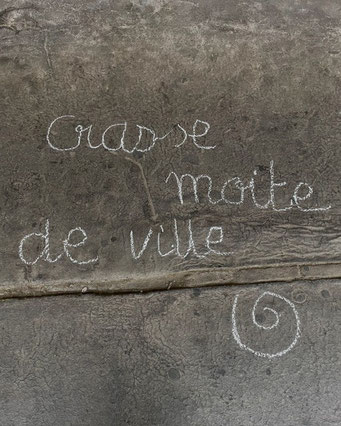 crasse
moite
de ville